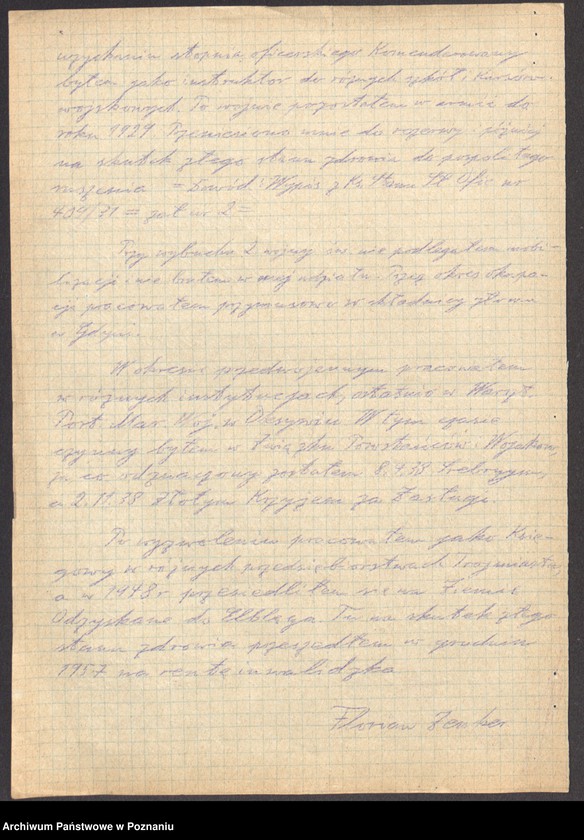 uzyskaniu stopnia oficerskiego Komenderowany
byłem jako instruktor do różnych szkół i kursów
wojskowych. Po wojnie pozostałem w armii do
roku 1929. Przeniesiono mnie do rezerwy i później
na skutek złego stanu zdrowia do pospolitego
ruszenia = Dowód: Wypis z Ks. Ofic nr
zał nr 2 =
Przy wybuchu 2 wojny św. nie podlegałem mobi-
lizacji i nie brałem w niej udziału. Przez okres okupa-
cji pracowałem przymusowo w składnicy złomu
w Gdyni.
W okresie przedwojennym pracowałem
w różnych instytucjach, ostatnio w Warszt.
Port. Mar. Woj. w Oksywiu. W tym czasie
czynny byłem w Związku Powstańców i Wojaków,
za co odznaczony zostałem Srebrnym,
a 2.11.38 Złotym Krzyżem za Zasługi.
Po wyzwoleniu pracowałem jako Księ-
gowy w różnych przedsiębiorstwach Trójmiasta,
a w 1948 r. przesiedliłem się na Ziemie
Odzyskane do Elbląga. Tu na skutek złego
stanu zdrowia przeszedłem w grudniu
1957 na rentę inwalidzką
Florian
Archiwum Państwowe w Poznaniu